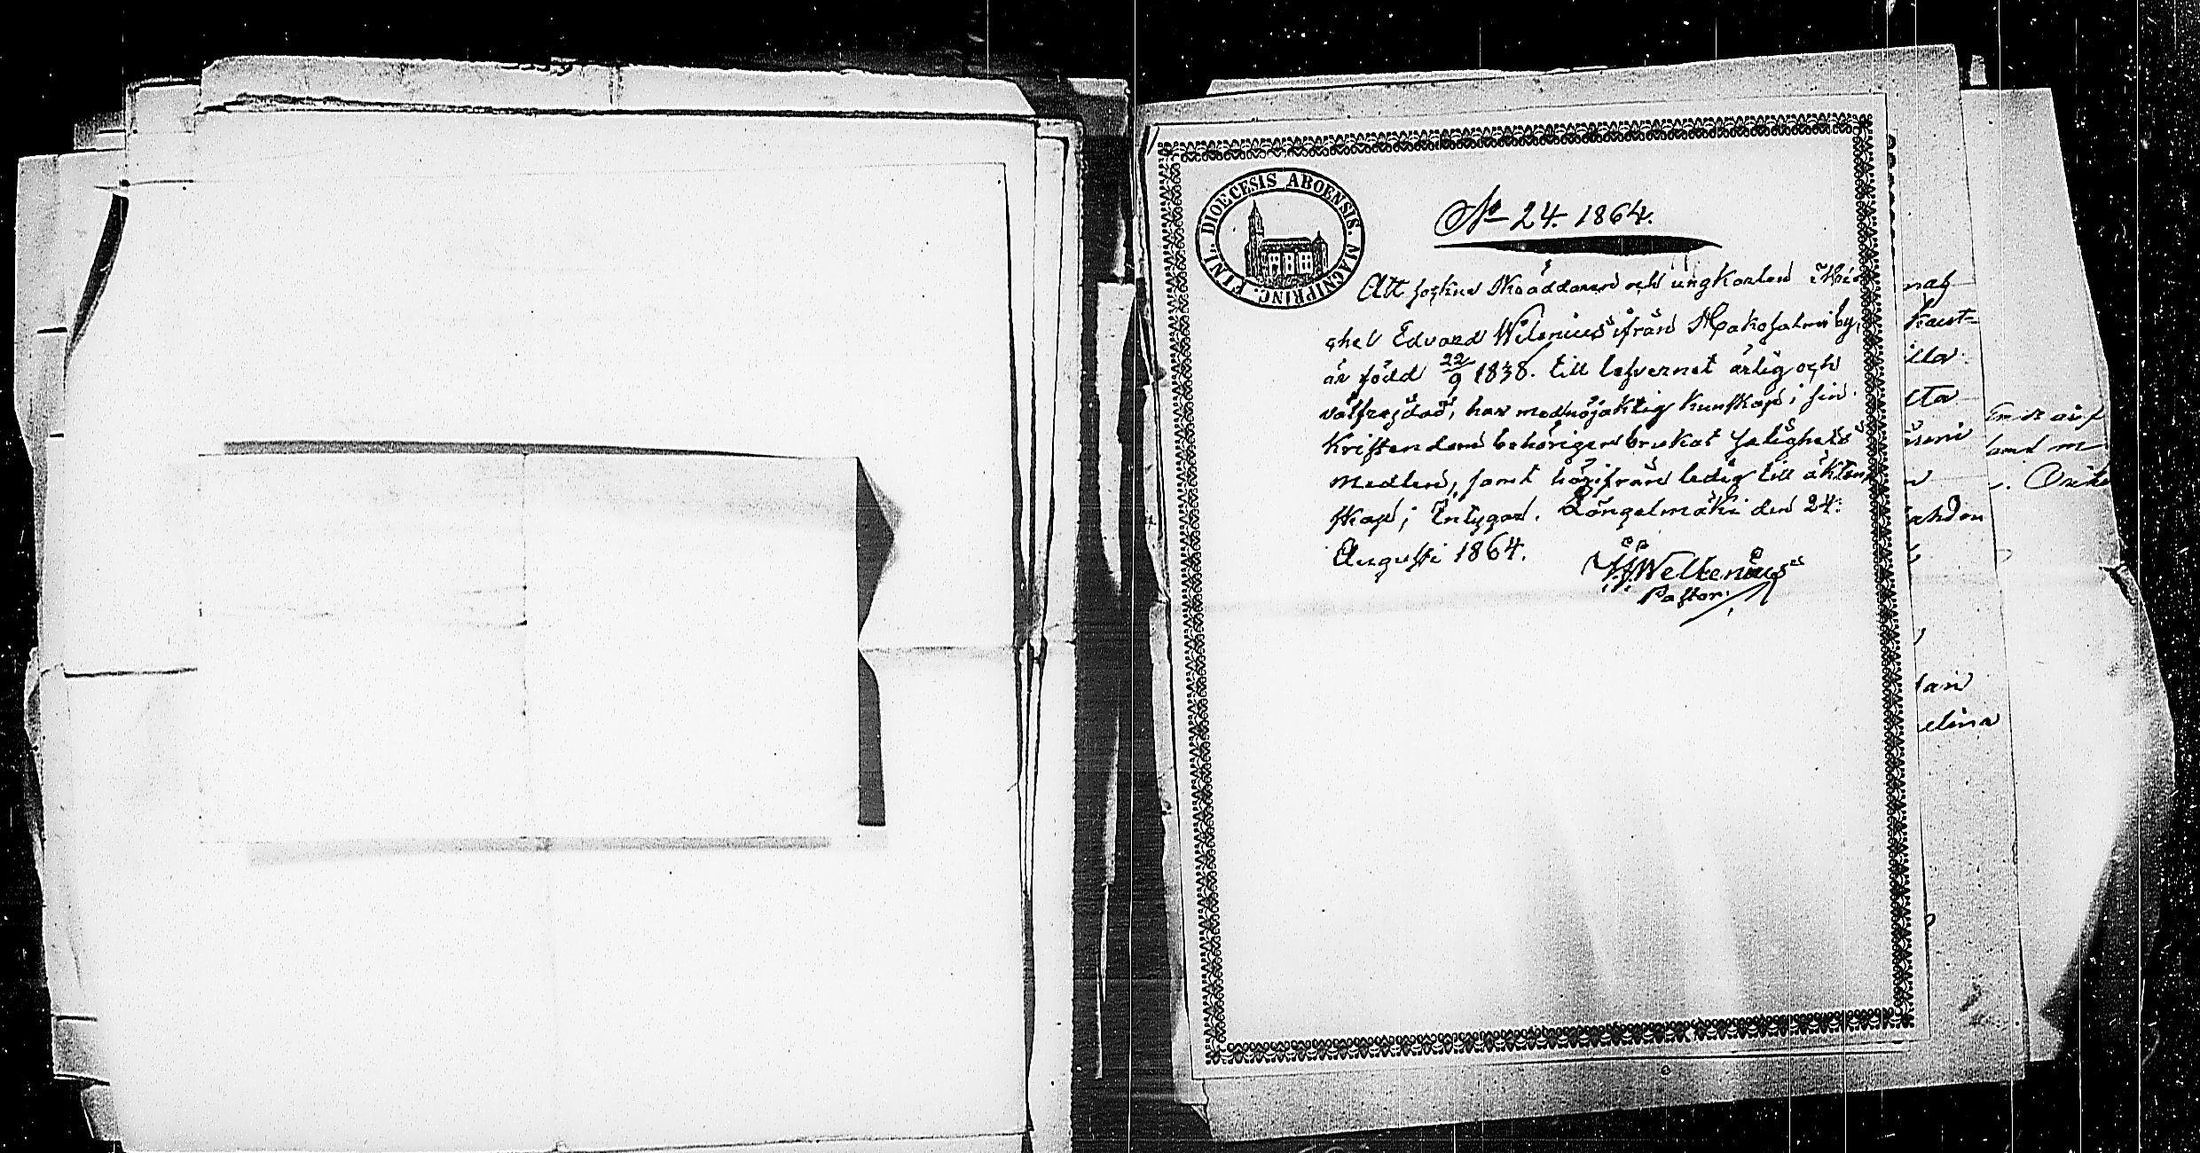 DIOECESIS ABOENSIS. MAGNIPRINC. FINL.
No 24. 1864.
Att sockne Skräddaren och ungkarlen Mi
chel Edvard Wilenius ifrån Hakosalmi by,
är född 22/9 1838. till lefvernet ärlig och
välfrejdad, har mednöjaktig kunskap i sin
Kristendom behörigen brukat salighets
medlen, samt härifrån ledig till äkten
skap; Intygar. Längelmäki den 24.
Augusti 1864.
Wellenius
Pastor.
nas
Kaust=
illa
sta
n
ahdon
tan
elina
land m